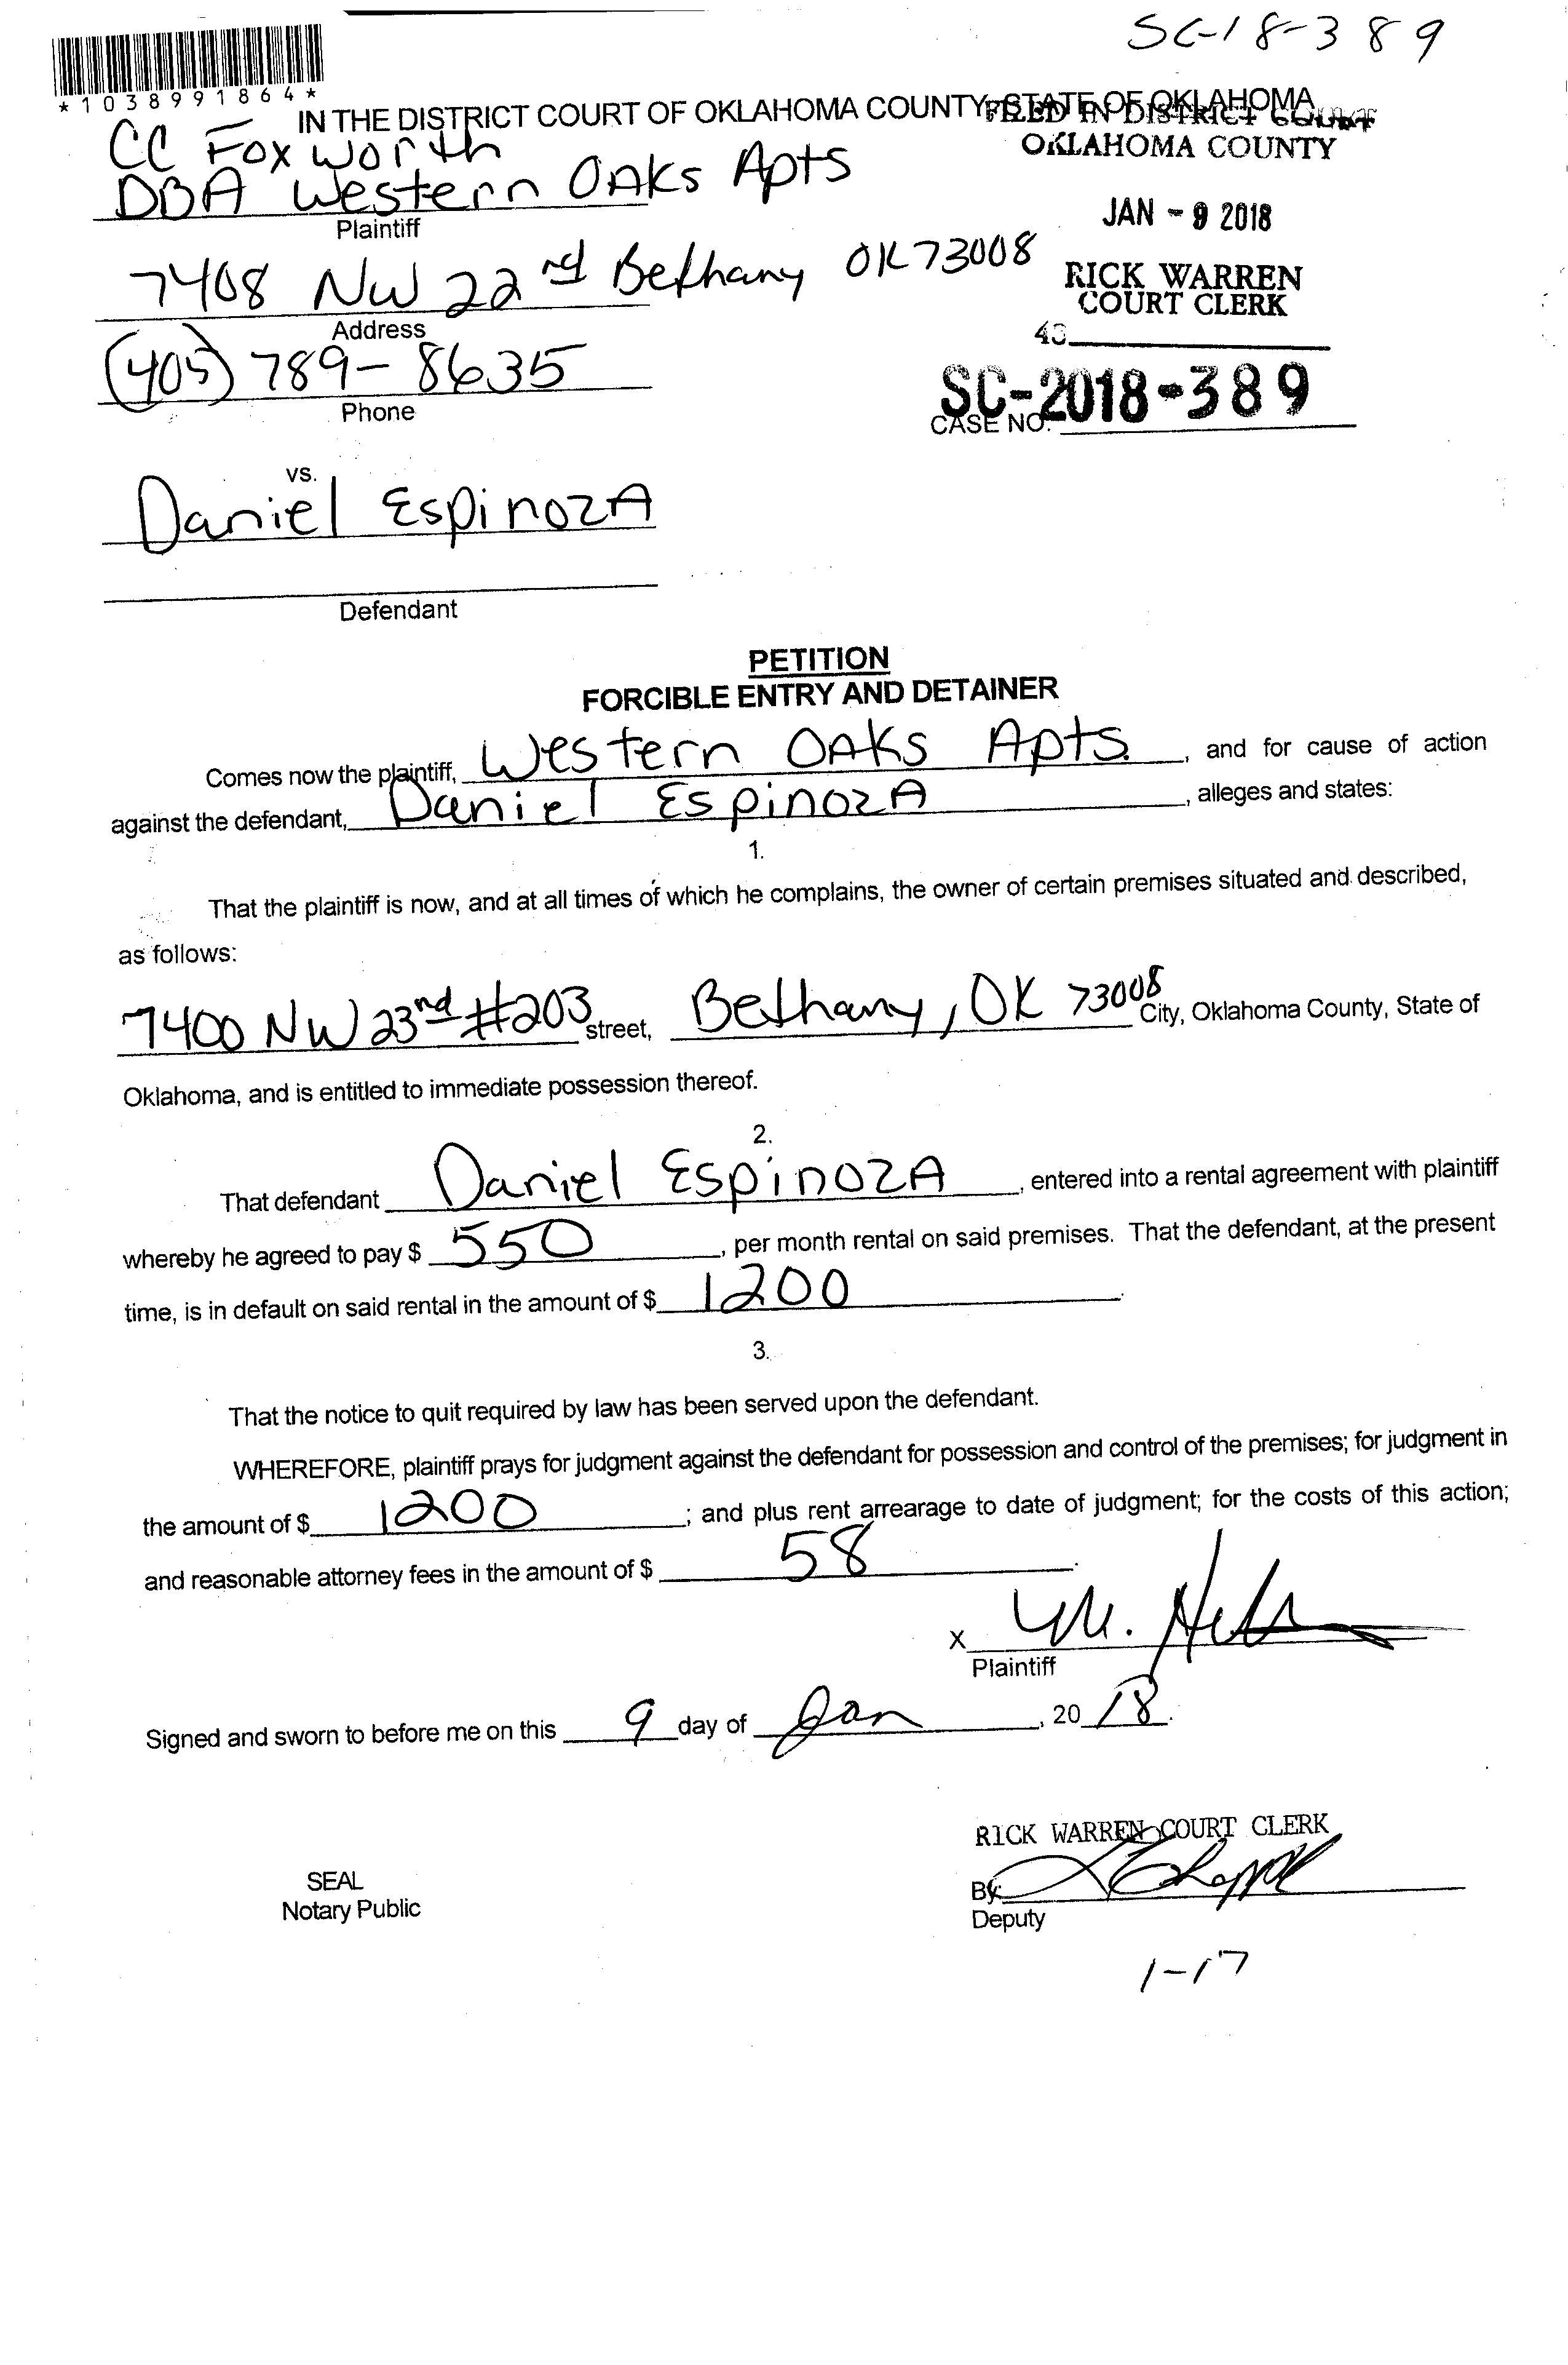 SC-18-389
*1038991864*
IN THE DISTRICT COURT OF OKLAHOMA COUNTY, STATE OF OKLAHOMA
FILED IN DISTRICT COURT
OKLAHOMA COUNTY
CC Foxworth
DBA Western OAKs Apts
Plaintiff
JAN - 9 2018
7408 NW 22nd Bethany OK 73008
Address
RICK WARREN
COURT CLERK
43
(405) 789-8635
Phone
SC-2018-389
CASE NO.
vs.
Daniel EspinozA
Defendant
PETITION
FORCIBLE ENTRY AND DETAINER
Comes now the plaintiff, Western OAKs Apts. , and for cause of action
against the defendant, Daniel EspinozA , alleges and states:
1.
That the plaintiff is now, and at all times of which he complains, the owner of certain premises situated and described,
as follows:
7400 NW 23nd #203 street, Bethany, OK 73008 City, Oklahoma County, State of
Oklahoma, and is entitled to immediate possession thereof.
2.
That defendant Daniel EspinozA , entered into a rental agreement with plaintiff
whereby he agreed to pay $ 550 , per month rental on said premises. That the defendant, at the present
time, is in default on said rental in the amount of $ 1200 .
3.
That the notice to quit required by law has been served upon the defendant.
WHEREFORE, plaintiff prays for judgment against the defendant for possession and control of the premises; for judgment in
the amount of $ 1200 ; and plus rent arrearage to date of judgment; for the costs of this action;
and reasonable attorney fees in the amount of $ 58 .
X
Plaintiff
Signed and sworn to before me on this 9 day of Jan , 20 18.
RICK WARREN COURT CLERK
SEAL
Notary Public
By
Deputy
1-17